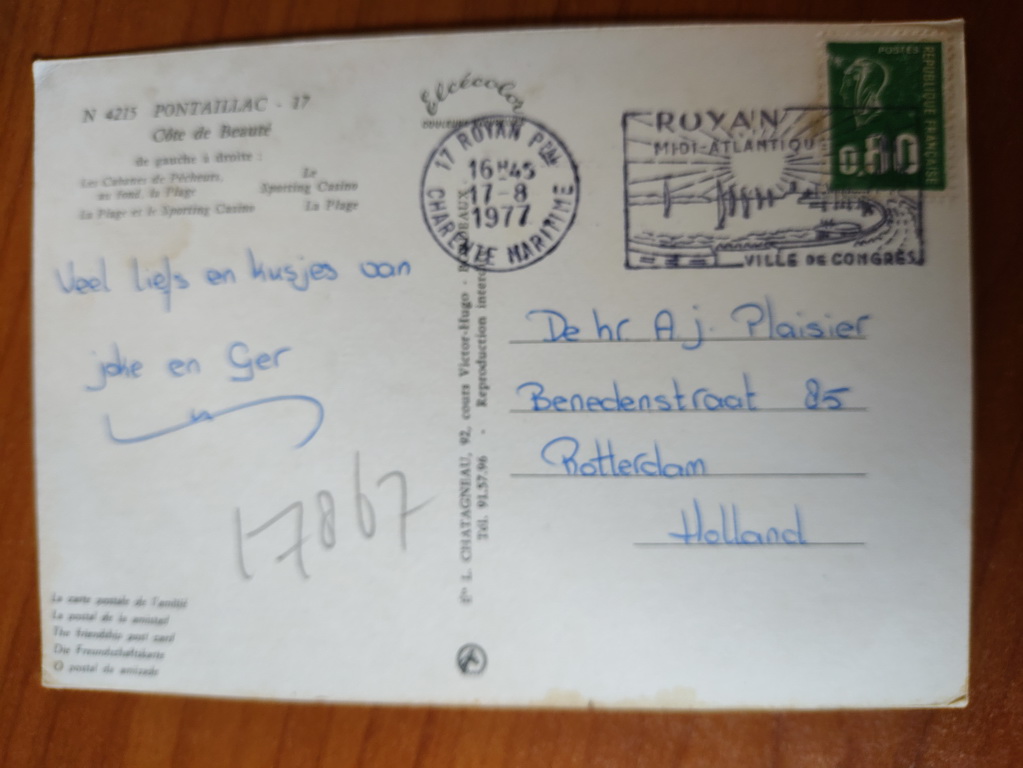 N 4215 PONTAILLAC - 17
Côte de Beauté
de gauche à droite :
Les Cabanes de Pêcheurs,
au fond, la Plage
Le
Sporting Casino
La Plage et le Sporting Casino
La Plage
Elcécolor
17 ROYAN Pᵃˡ
16H45
17-8
1977
CHARENTE MARITIME
ROYAN
MIDI-ATLANTIQUE
VILLE DE CONGRÈS
POSTES
RÉPUBLIQUE FRANÇAISE
0,80
Veel liefs en kusjes van
joke en Ger
17867
De hr A.j. Plaisier
Benedenstraat 85
Rotterdam
Holland
L. CHATAGNEAU, 92, cours Victor-Hugo - BORDEAUX
Tél. 91.57.96 - Reproduction interd
La carte postale de l'amitié
La postal de la amistad
The friendship post card
Die Freundschaftskarte
O postal da amizade